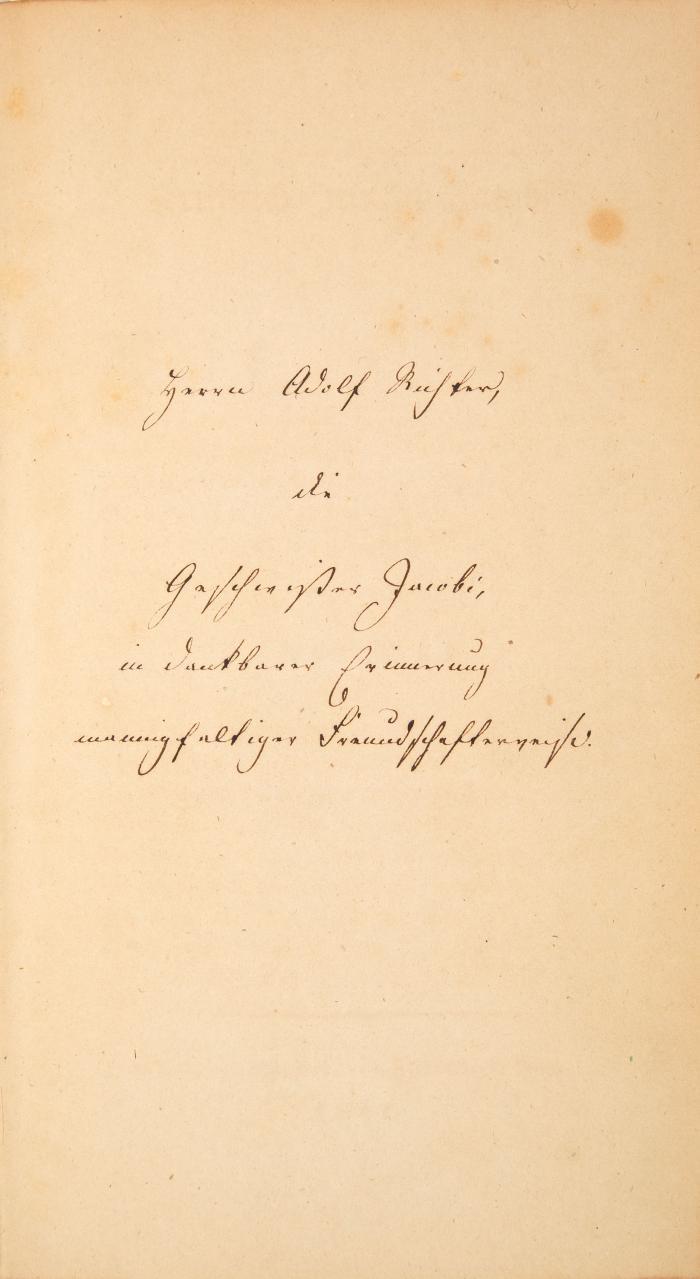 Herrn Adolf Richter,
die
Geschwister Jacobi,
in dankbarer Erinnerung
mannigfaltiger Freundschafterweise.